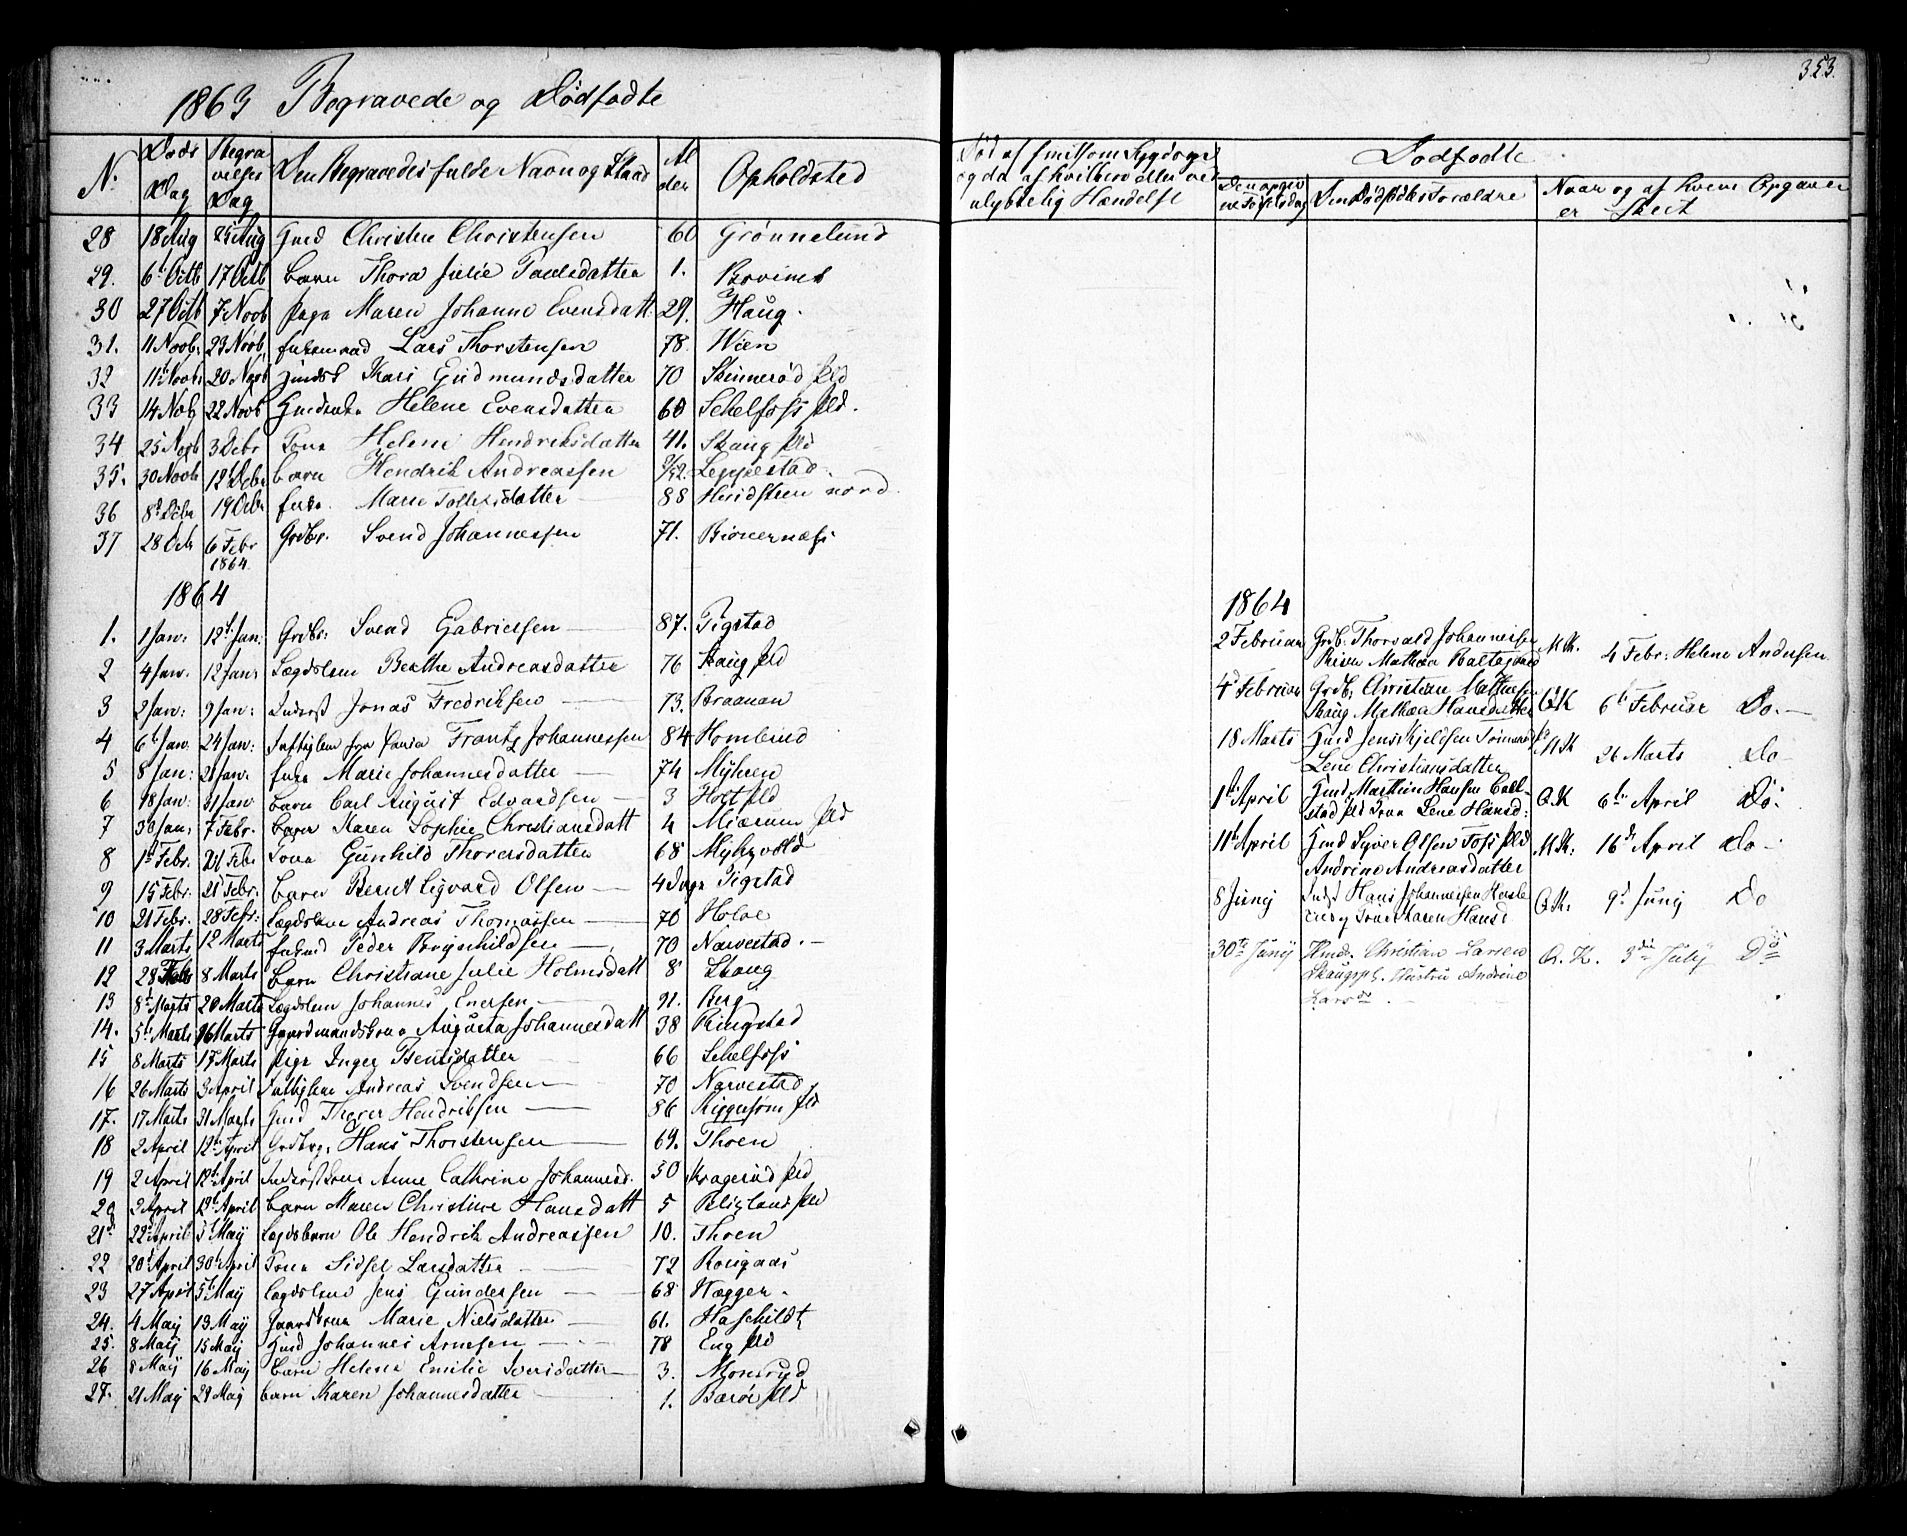 353.
1863 Begravede og Dødfødte
N. Døds Dag Begravelses Dag Den Begravedes fulde Navn og Stand Alder Opholdsted
28 18 Aug 25 Aug Huusd Christen Christensen 60 Grønnelund
29. 6t Octb 17 Octb barn Thora Julie Paulsdatter 1.
30 27 Octb 7. Novb pige Maren Johanne Evensdatt. 29. Haug.
31. 11 Novb. 23 Novb. Lars Thorstensen 78. Wien
32 11t Novb 20 Novb Kari Gudmundsdatter 70 Skinnerød pld
33 14 Novb 22 Novb Helene Evensdatter 60 Schelfoss pld.
34 25 Novb 3 Debr Kone Helene Hendriksdatter 41. Skaug pld
35. 30 Novb 12t Debr barn Hendrik Andreassen 9/52. Leppestad
36 8t Debr 19 Debr Marie Tollefsdatter 88 Huidsteen nord.
37 28 Octb 6 Febr 1864 Grdbr. Svend Johannessen 71. Biønernæss
1864
1. 1 Jan: 12t Jan: Grdbr: Svend Gabrielsen 87. Tigstad
2 4 Jan. 12 Jan: Lægdslem Berthe Andreasdatter 76 Haug pld
3 2 Jan: 9 Jan: Inderst Jonas Fredriksen 73. Braanan
4 6t Jan. 24 Jan: Frantz Johannessen 84 Hombrind
5 8 Jan: 21 Jan. Marie Johannesdatter 74 Myhren
6 18 Jan: 31 Jan barn Carl August Edvardsen 3 Holt pld
7 30 Jan; 7 Febr. barn Karen Sophie Christiansdatt 4 Miærum pld
8 1t Febr. 21 Febr Kone Gunhild Thoresdatter 68 Myhrvold
9 15 Febr. 21 Febr. barn Bernt Sigvard Olsen 4 Dage Tigstad
10 21 Febr. 28 Febr: Lægdslem Andreas Thomassen 70 Holoe
11 3 Marts 12 Marts Peder Brynhildsen 70 Narvestad.
12 28 Febr 8 Marts barn Christiane Julie Holmsdatt 8 Skaug
13 8t Marts 20 Marts Lægdslem Johannes Enersen 91. Berg
14. 5t Marts 16 Marts Gaardmandskone Augusta Johannesdatt 38 Ringstad
15 8 Marts 17 Marts pige Inger Bentsdatter 66 Schelfoss
16 26 Marts 3 April Andreas Svendsen 70 Narvestad
17. 17 Marts 31 Marts Huusd Thorer Hendriksen 86 Riggesøm pld
18 2 April 12t April Grdbrg. Hans Thorstensen 69. Thoen
19 2 April 12t April Inderstkone Anne Cathrine Johannesd. 50 Kragerud pld
20 2 April 12t April barn Maren Christine Hansdatt 5 pld
21 22 April 5t Maij Lægdsbarn Ole Hendrik Andreassen 10. Thoen
22 20 April 30t April Kone Sidsel Larsdatter 72 Rougaas
23 27 April 5t Maij Lægdslem Jens Gundersen 68 Hægger.
24. 4 Maij 13 Maij Gaardkone Marie Nielsdatter 61. Haschildt
25. 8 Maij 15 Maij Huusd Johannes Arnesen 78 Eng pld
26 8 Maij 16 Maij barn Helene Emilie Iversdatter 3. Monsrud
27. 21 Maij 29 Maij barn Karen Johannesdatter 1. Barøe pld
Død af smitsom Sygdom og da af hvilken eller ved ulykkelig Hændelse
Dødfødte
Den opgivne Fødselsdag Den Dødfødtes Forældre Naar og af hvem Opgaven er Skeet
1864
2 Februar Grdb. Thorvald Johannessen
Mathea M.K. 4 Febr: Helene Andersen
4 Februar Grdb. Christian Mathisen
Skaug Mathea Hansdatter Q.K 6t Februar Do.
18 Marts Huusd Jens Kjeldsen
Lene Christiansdatter M.K 26 Marts Do
1t April Huusd Matthias Hansen
pld Kone Lene Hansd: Q.K 6t April Do.
11t April Huusd Syver Olsen Foss pld
Andrine Andreasdatter M.K. 16d April Do
8 Junij Inds Hans Johannesen
Kone Karen Hansd Q.K. 9d Junij Do
30te Junij Huusd. Christian Larsen
Skaugspl. Hustru Andrine
Larsd. Q.K. 3die July Do